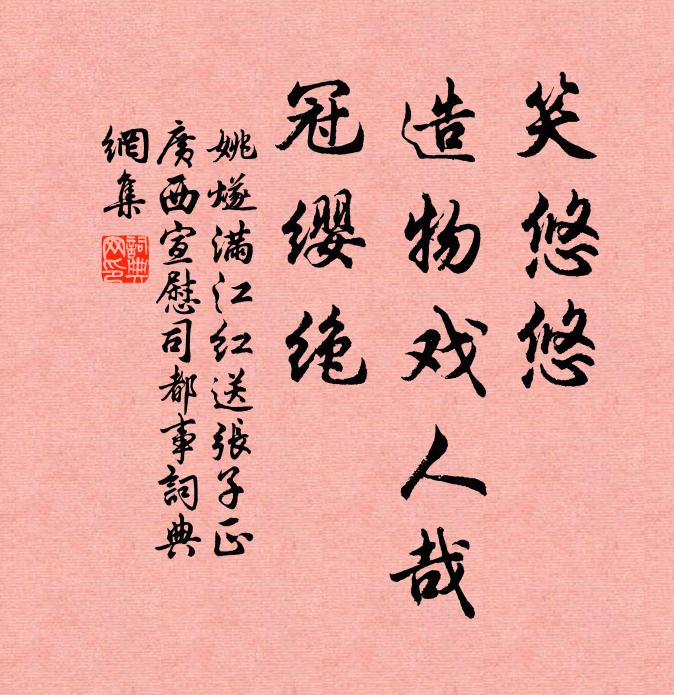 笑悠悠
造物戏人哉
冠缨绝
姚燧满江红送張子正
廣西宣慰司都事詞典
網集
詞典網印